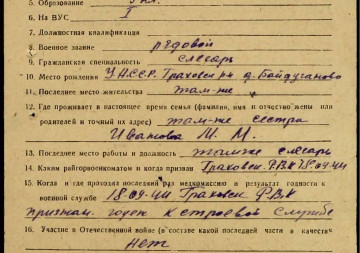 5. Образование 5 кл.
6. На ВУС I
7. Должностная квалификация
8. Военное звание рядовой
9. Гражданская специальность слесарь
10. Место рождения д. Байдуганово
11. Последнее место жительства там-же
12. Где проживает в настоящее время семья (фамилия, имя и отчество жены или
родителей и точный их адрес) там-же сестра
Иванова М. М.
13. Последнее место работы и должность слесарь
14. Каким райгорвоенкоматом и когда призван Траковск. РВК 18.09.44
15. Когда и где проходил последний раз медкомиссию и результат годности к
военной службе 18.09.44 Траковск РВК
признан годен к строевой службе
16. Участие в Отечественной войне (в составе какой последней части в качестве
нет